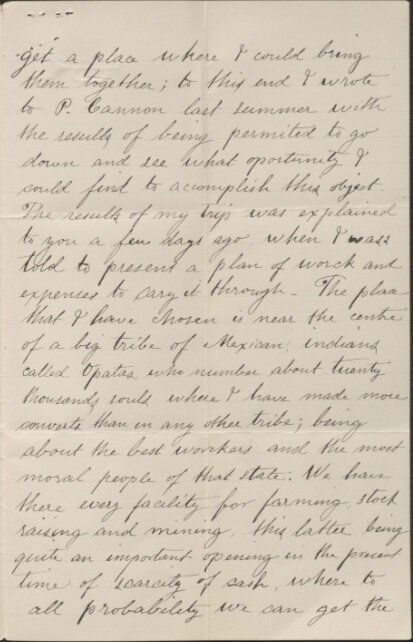 get a place where I could bring
them together; to this end I wrote
to P. Cannon last summer with
the results of being permited to go
down and see what oportunity I
could find to accomplish this object.
The results of my trip was explained
to you a few days ago, when I was
told to present a plan of worck and
expenses to cary it through. The place
that I have chosen is near the centre
of a big tribe of Mexican indians
called Opatas who number about twenty
thousands souls where I have made more
converts than in any other tribe; being
about the best worckers and the most
moral people of that state. We have
there every facility for farming, stock
raising and mining, this latter being
quite an important opening in the present
time of scarcity of cash, where to
all probability we can get the